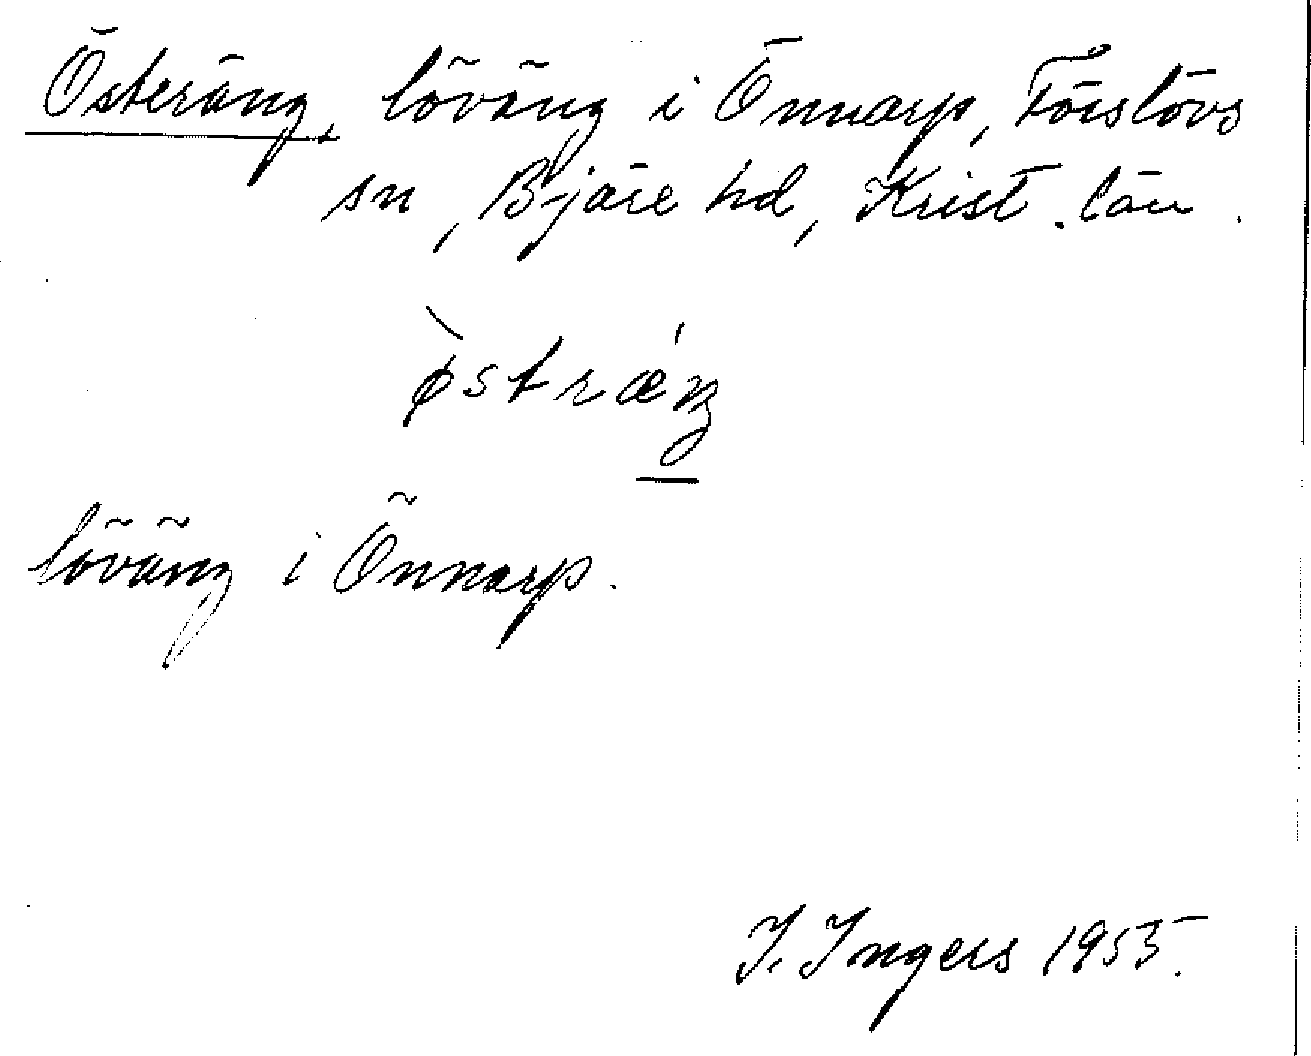 Österäng, löväng i Önnarp, Förslövs
sn, Bjäre hd, Krist. län.
ø̀strǽŋ
löväng i Önnarp.
I. Ingers 1955.